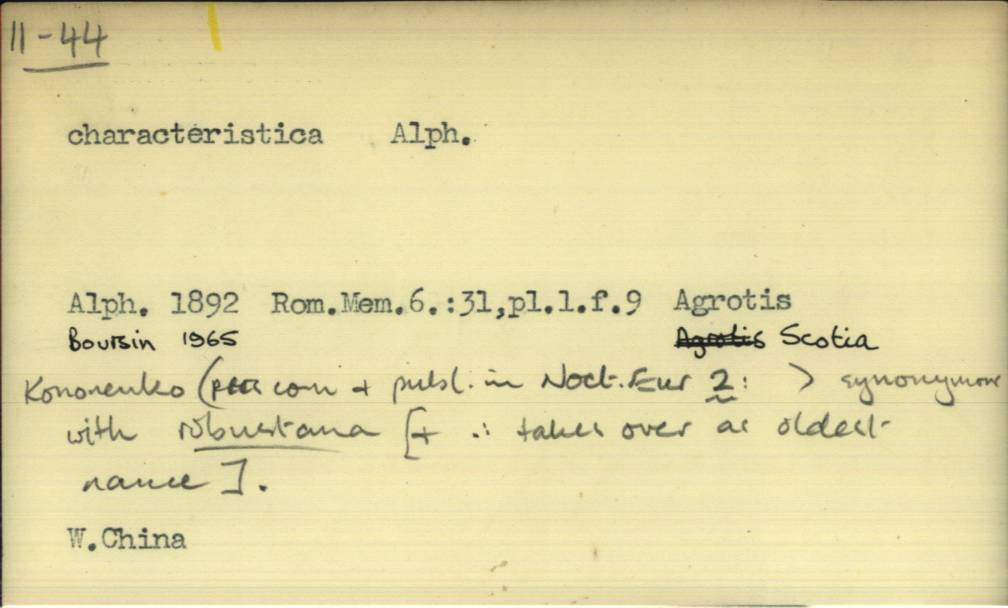 11-44
characteristica Alph.
Alph. 1892 Rom.Mem.6.:31,pl.1.f.9 Agrotis
Boursin 1965 Agrotis Scotia
Kononenko ( com + publ. in Noct. Eur 2: ) synonymous
with robustana [+ ∴ takes over as oldest
name].
W.China